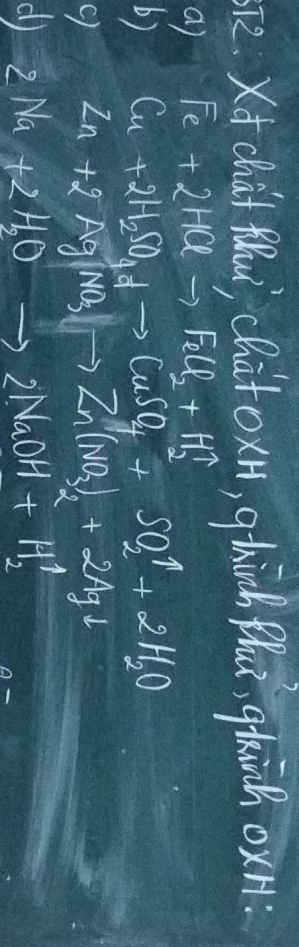 BT2: Xđ chất khử, chất OXH, qtrình khử, qtrình OXH:
a) Fe + 2HCl → FeCl₂ + H₂↑
b) Cu + 2H₂SO₄đ → CuSO₄ + SO₂↑ + 2H₂O
c) Zn + 2AgNO₃ → Zn(NO₃)₂ + 2Ag↓
d) 2Na + 2H₂O → 2NaOH + H₂↑